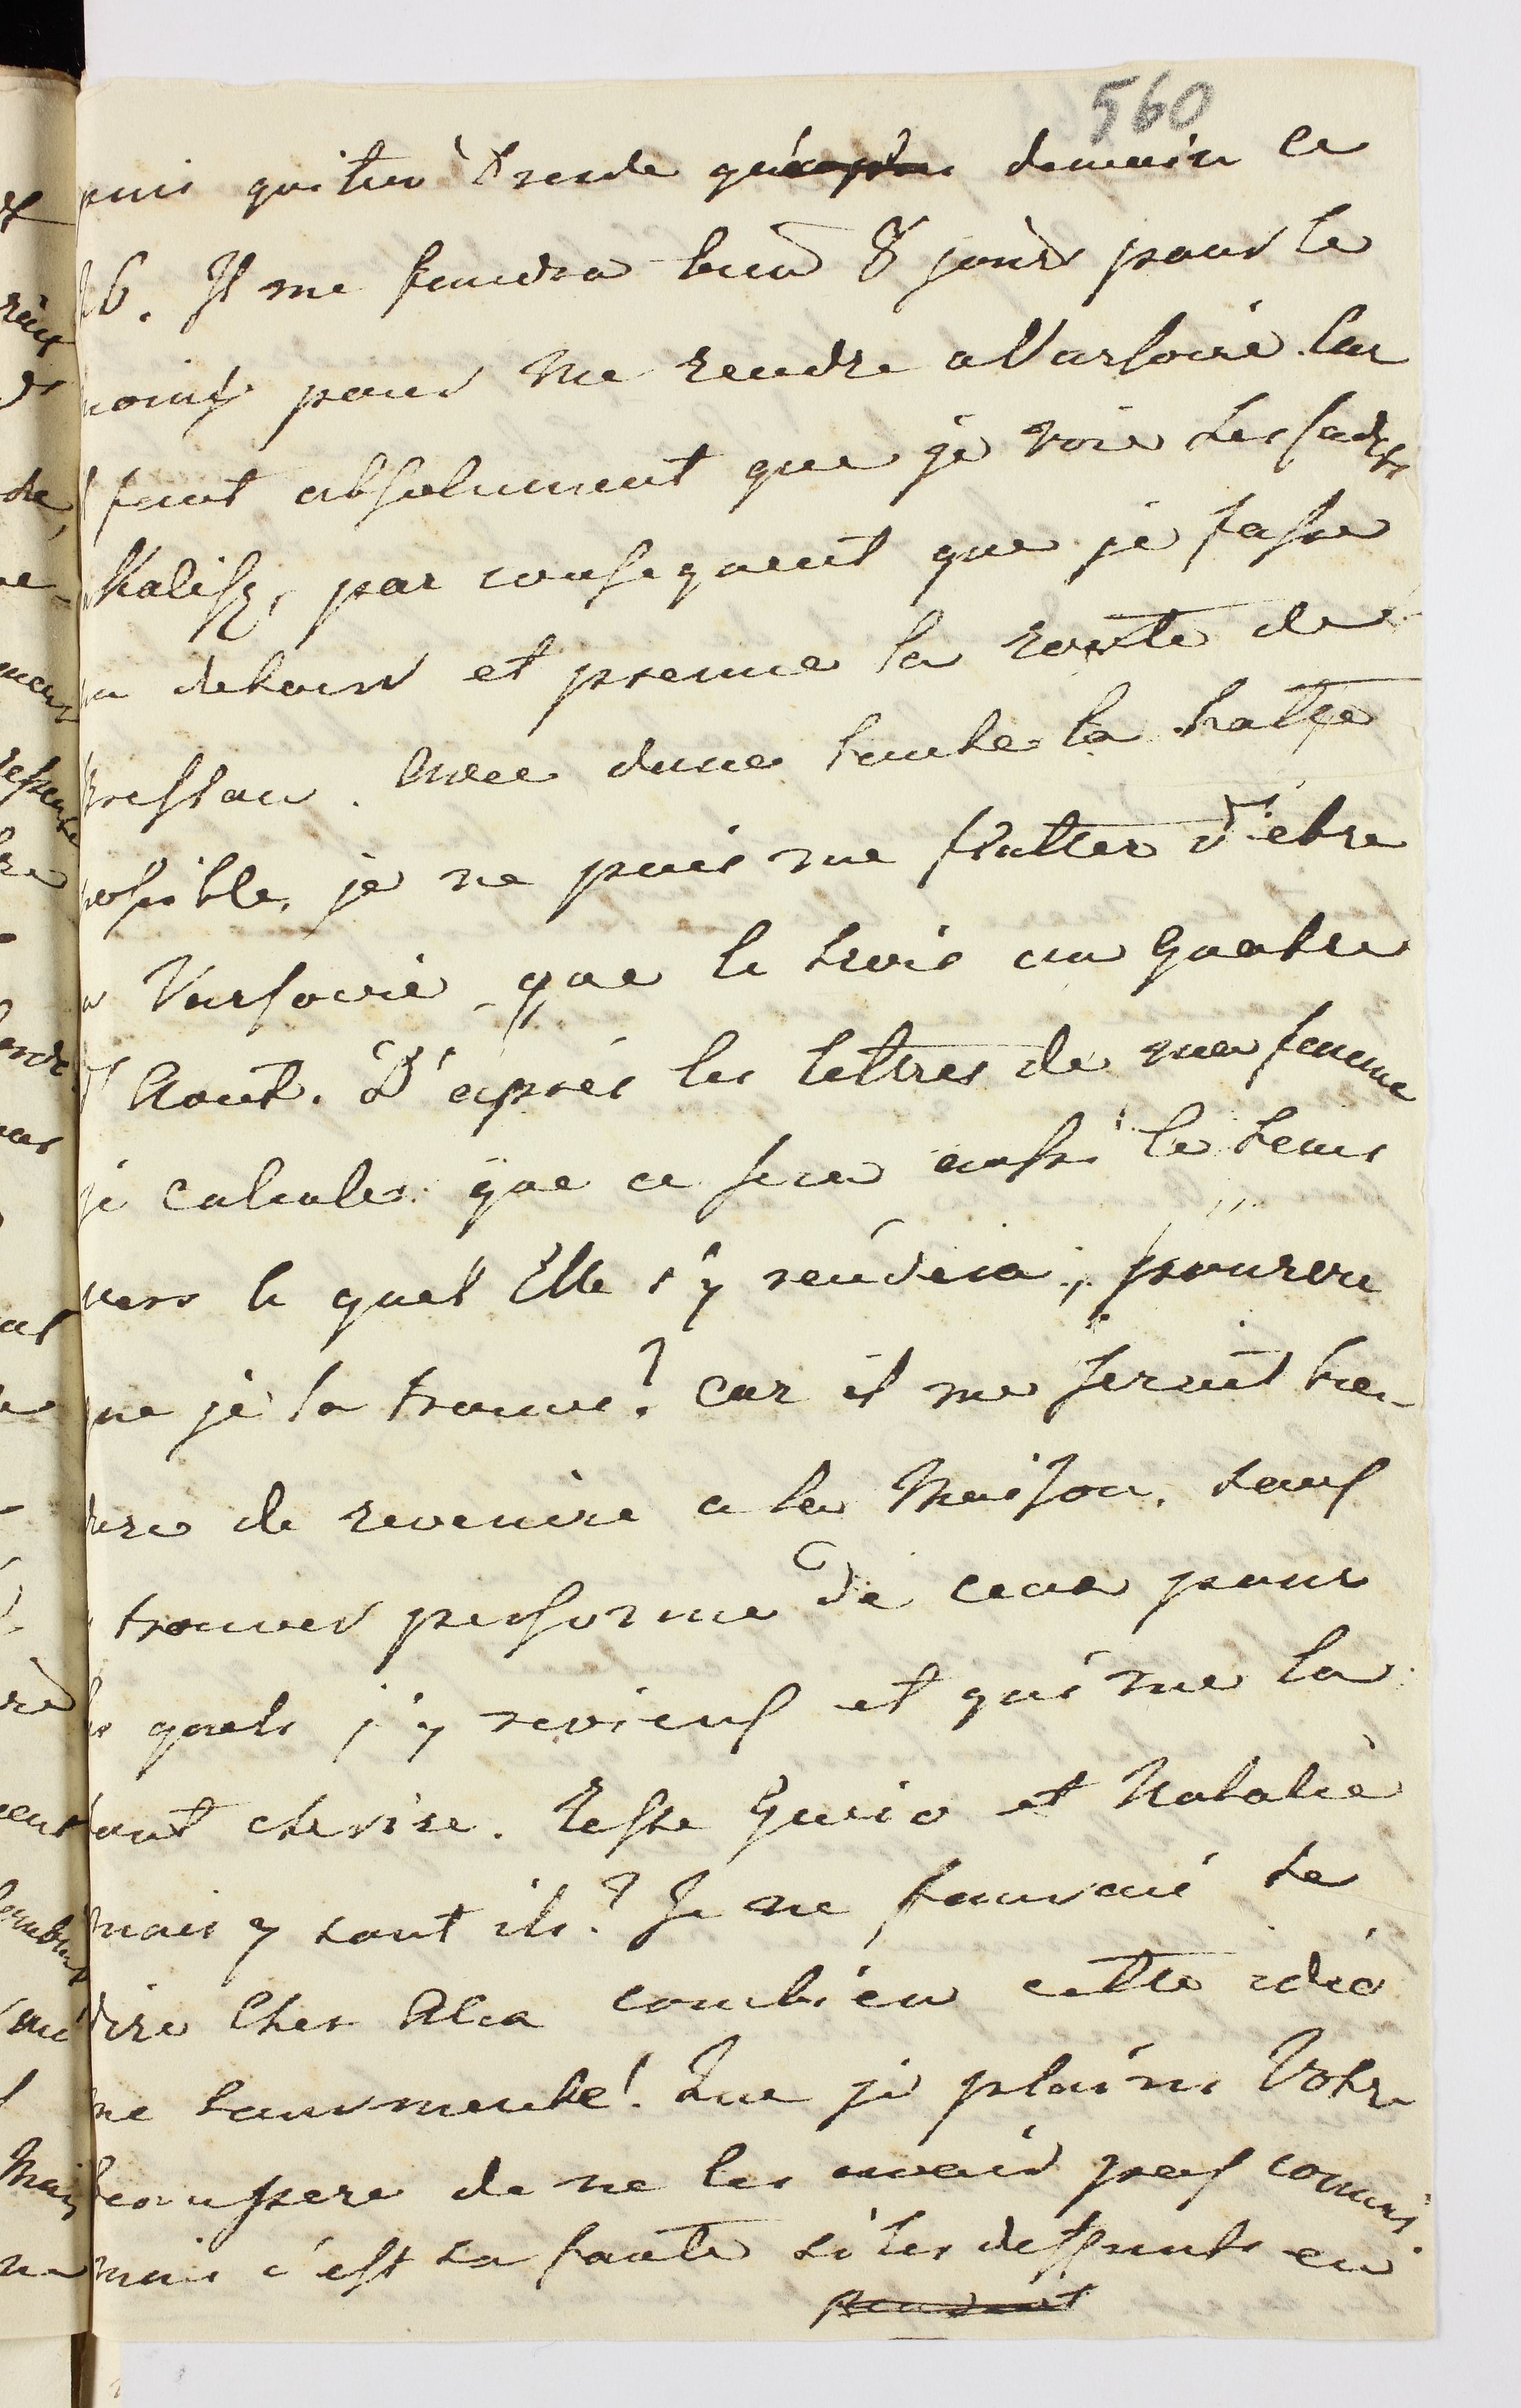 560
puis quiter Dresde qu'après demain le
16. Il me foudra bien 8 jours pour le
moins pour me rendre a Varsovie. Car
il faut absolument que je voie les
Kalisz, par consequent que je fasse
un detour et prenne la route de
Breslau. Avec donc toute la hatte
possible, je ne puis me flatter d'etre
a Varsovie que le trois ou quatre
d'Aout. D'après les lettres de ma femme
je calcule que ce sera aussi le tems
vers le quel Elle s'y rendera; pourvu
que je la trouve? Car il me seroit bien
dure de revenire a la Maison, sans
trouver personne de ceux pour
les quels j'y reviens et qui me la
font cherire. Reste Gucio et Natalie
mais y sont ils? Je ne saurais te
dire Cher Alex combien cette idée
me tourmente! Que je plains Votre
beaupere de ne les avoir pas connus
mais c'est sa faute si les deffunts en